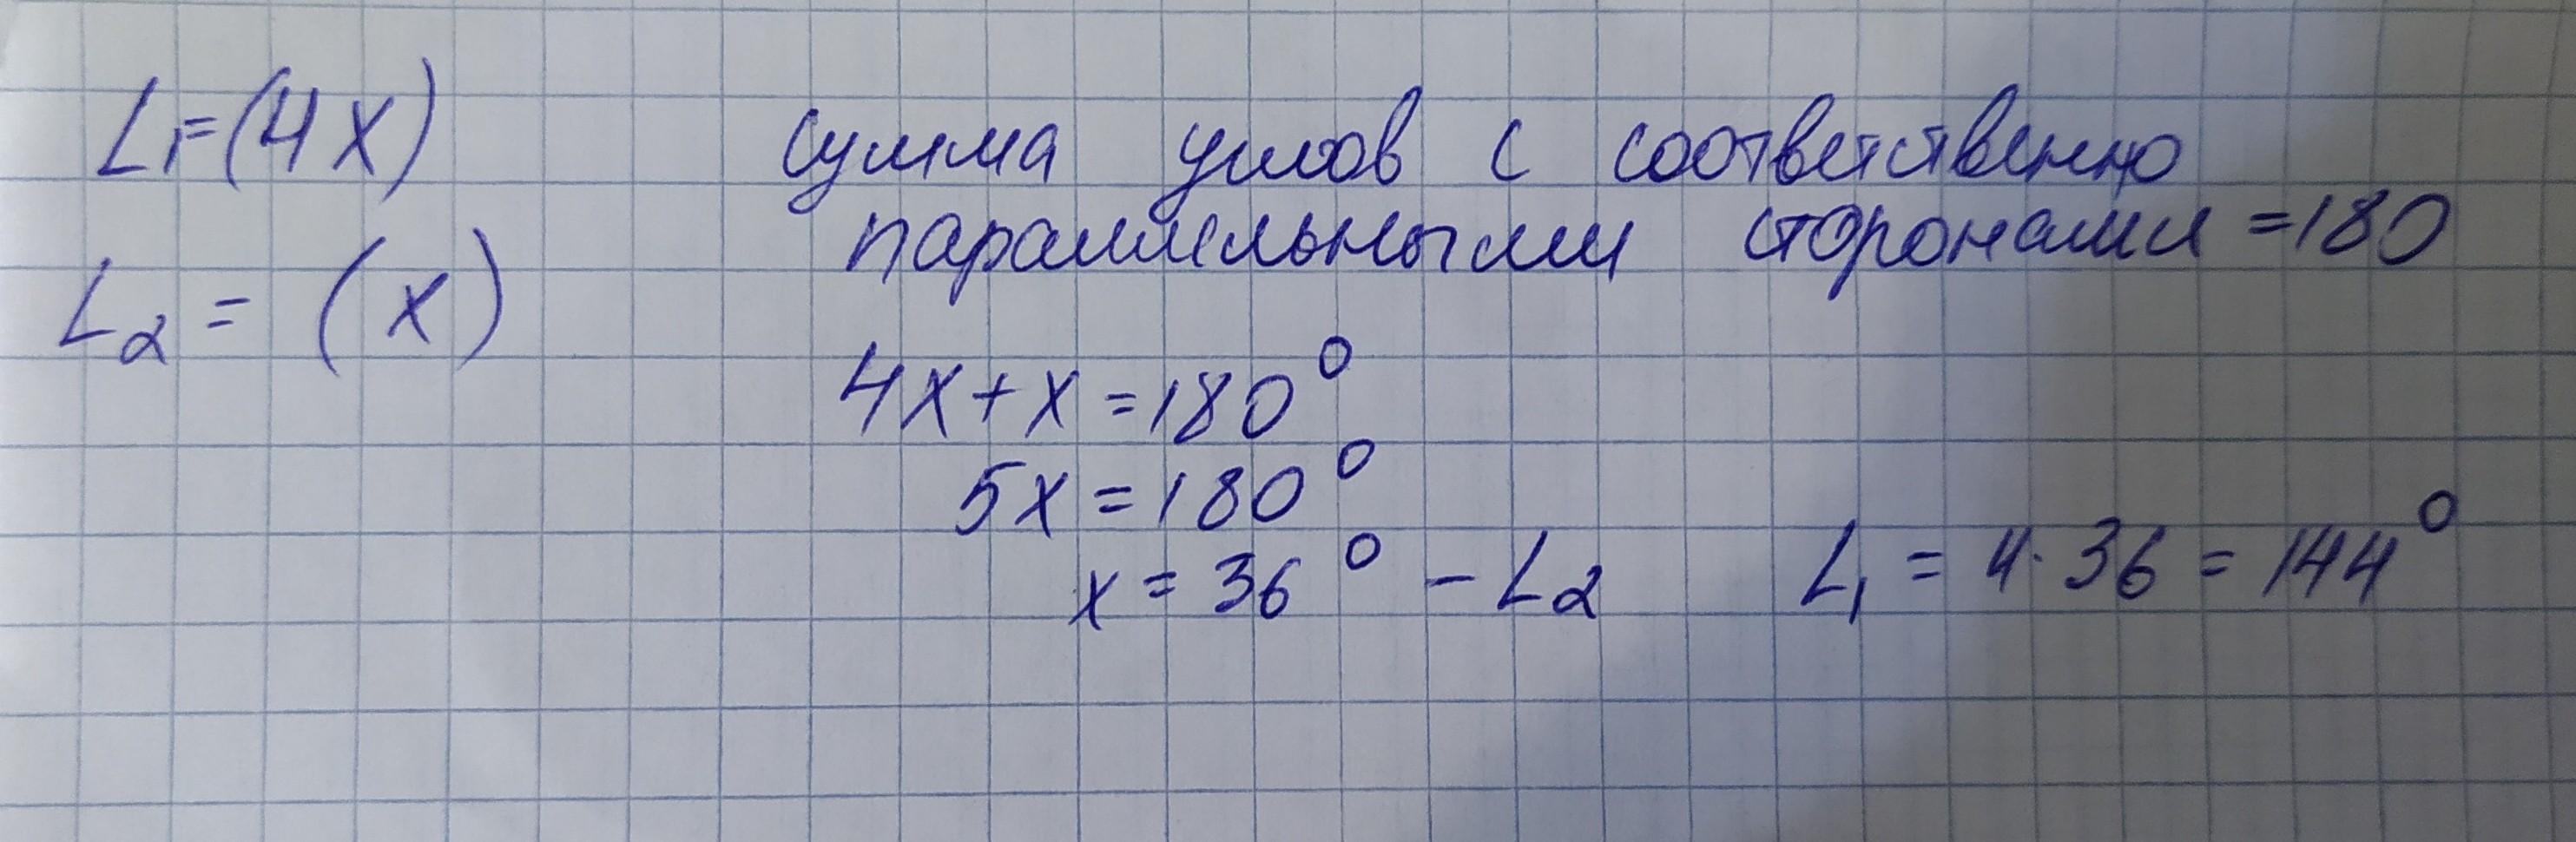 ∠1=(4x)
∠2 = (x)
сумма углов с соответственно
параллельными сторонами =180
4x+x=180°
5x=180°
x=36° - ∠2
∠1 = 4·36=144°